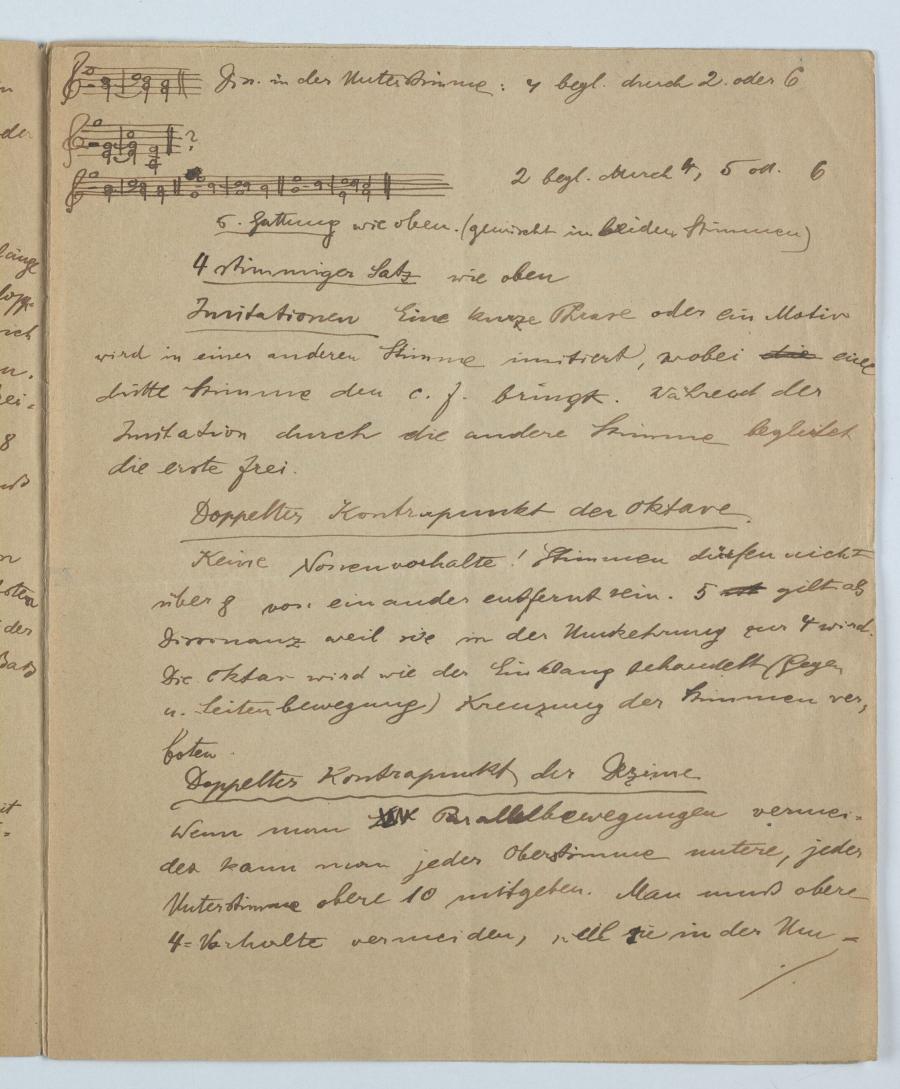 Diss. in der Unterstimme: 4 begl. durch 2. oder 6
?
2 begl. durch 4, 5 od. 6
5. Gattung wie oben. (gemischt in beiden Stimmen)
4 stimmiger Satz wie oben
Imitationen Eine kurze Phrase oder ein Motiv
wird in einer anderen Stimme imitiert, wobei die eine
dritte Stimme den c. f. bringt. Während der
Imitation durch die andere Stimme begleitet
die erste frei.
Doppelter Kontrapunkt der Oktave.
Keine Nonenvorhalte! Stimmen dürfen nicht
über 8 von einander entfernt sein. 5 gilt als
Dissonanz weil sie in der Umkehrung zur 4 wird.
Die Oktav wird wie der Einklang behandelt (Gegen
u. Seitenbewegung) Kreuzung der Stimmen ver,
boten.
Doppelter Kontrapunkt der Dezime
Wenn man Parallelbewegungen vermei-
det kann man jeder Oberstimme untere, jeder
Unterstimme obere 10 mitgeben. Man muß obere
4=Vorhalte vermeiden, weil sie in der Um-